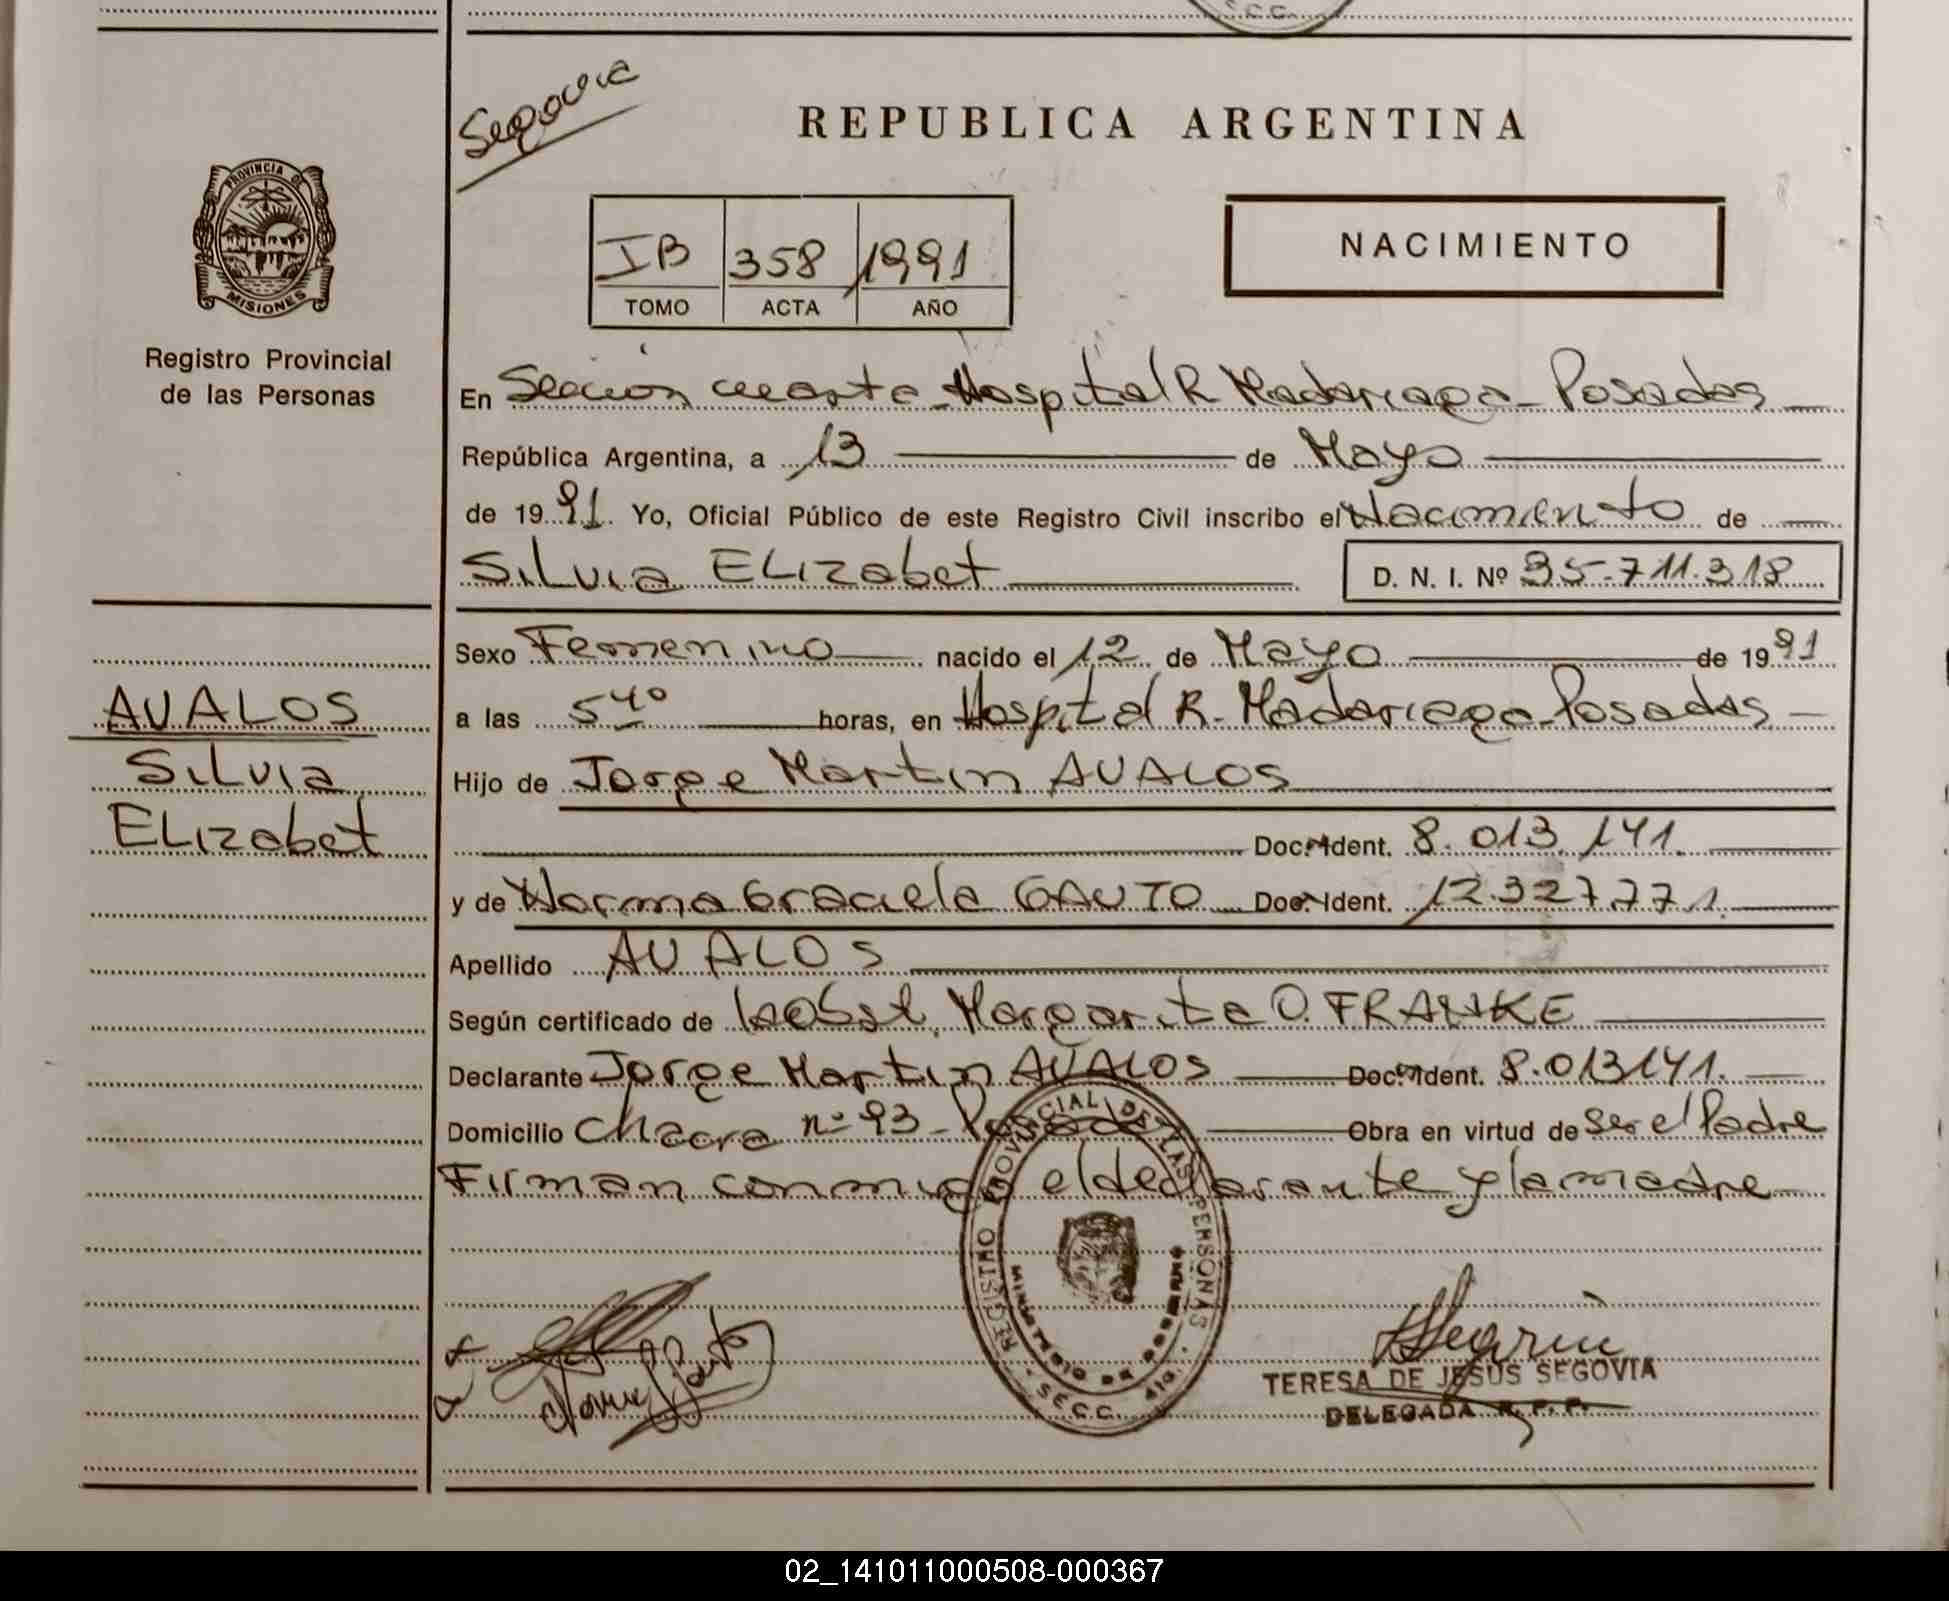 S.C.C.
Segovia
REPUBLICA ARGENTINA
PROVINCIA DE
MISIONES
Registro Provincial
de las Personas
IB 358 1991
TOMO ACTA AÑO
NACIMIENTO
En Sección cuarta - Hospital R Madariaga - Posadas
República Argentina, a 13 de Mayo
de 1991. Yo, Oficial Público de este Registro Civil inscribo el Nacimiento de
Silvia Elizabet D. N. I. Nº 35.711.318
Sexo Femenino nacido el 12 de Mayo de 1991
AVALOS
Silvia
Elizabet
a las 5 40 horas, en Hospital R. Madariaga - Posadas
Hijo de Jorge Martin AVALOS
Doc. Ident. 8.013.141.
y de Norma Graciela GAUTO Doc. Ident. 12.327.771.
Apellido AVALOS
Según certificado de Isabel Margarita O. FRANKE
Declarante Jorge Martin AVALOS Doc. Ident. 8.013141.
Domicilio Chacra nº 93 - Posadas Obra en virtud de ser el Padre
Firman conmigo el declarante y la madre
REGISTRO PROVINCIAL DE LAS PERSONAS
MINISTERIO DE GOBIERNO
SECC. 4ta.
TERESA DE JESUS SEGOVIA
DELEGADA R. P. P.
02_141011000508-000367